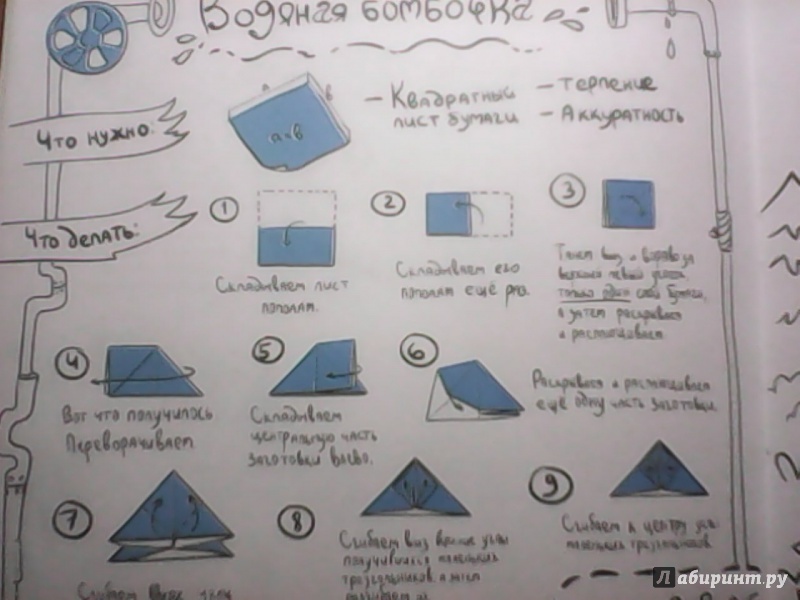 Водяная бомбочка
Что нужно:
a
в
a=в
– Квадратный
лист бумаги
– Терпение
– Аккуратность
Что делать:
1
Складываем лист
пополам.
2
Складываем его
пополам ещё раз.
3
Тянем вниз и вправо за
верхний левый уголок
только один слой бумаги,
а затем раскрываем
и расплющиваем.
4
Вот что получилось.
Переворачиваем
5
Складываем
центральную часть
заготовки влево.
6
Раскрываем и расплющиваем
ещё одну часть заготовки.
7
Сгибаем вверх углы
8
Сгибаем вниз
получившихся маленьких
треугольников, а затем
9
Сгибаем к центру углы
маленьких треугольников.
Лабиринт.ру